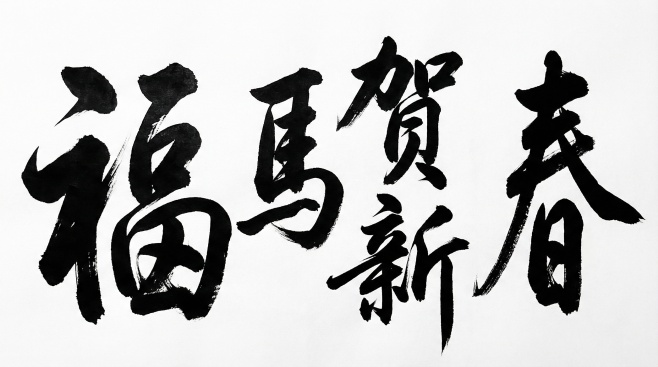 福馬賀新春